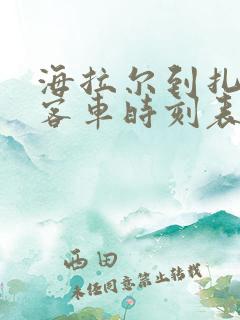 海拉尔到扎
客车时刻表
西田
未经同意禁止转载